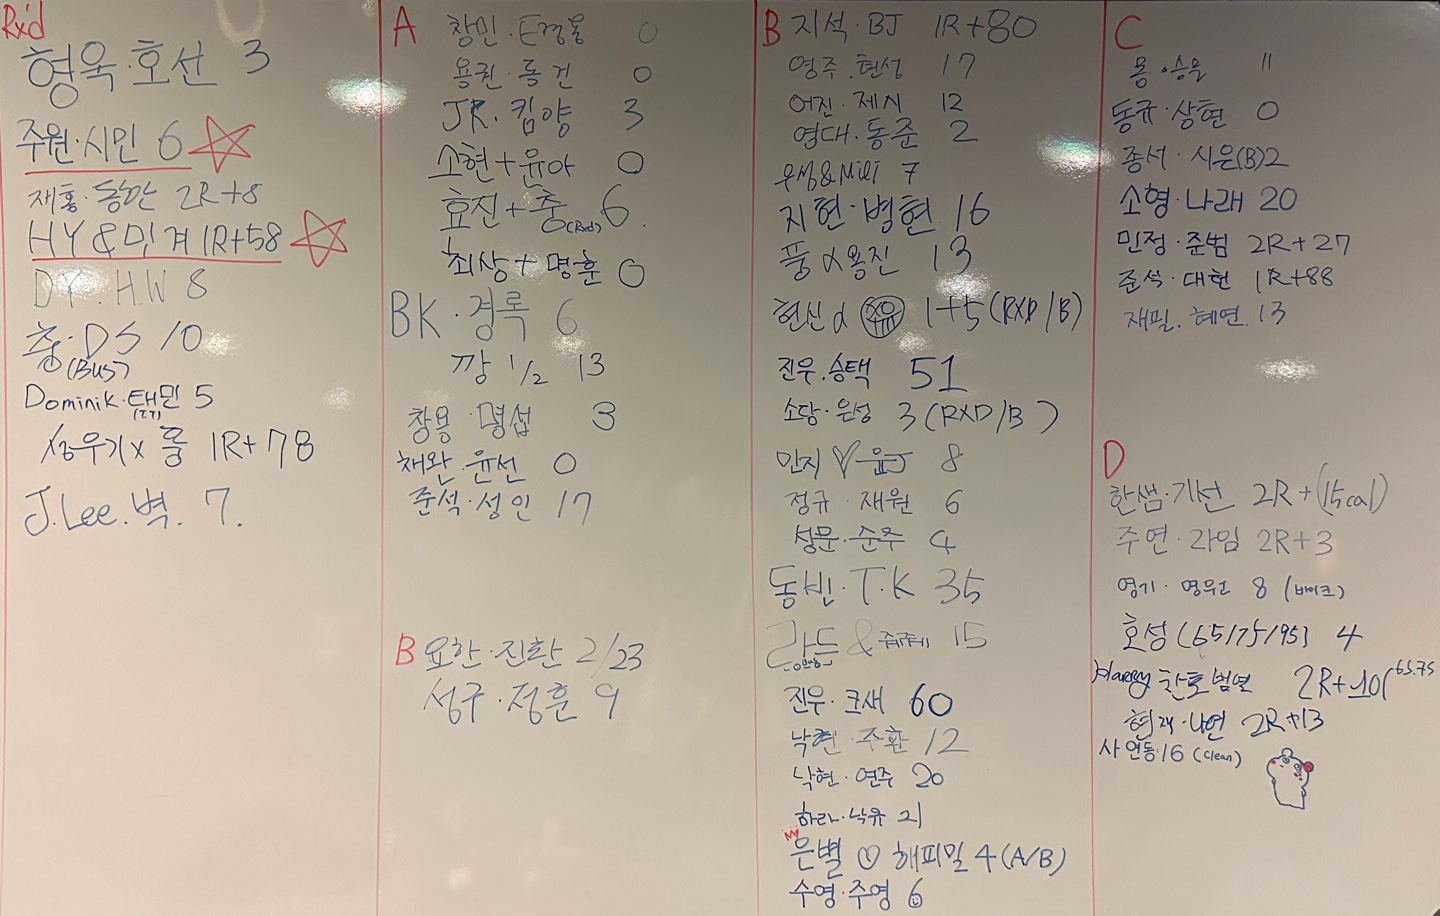 Rx'd
형욱·호선 3
주원·시민 6
재홍·동한 2R+8
HY & 미계 1R+58
DY·H.W 8
충·DS 10
(BUS)
Dominik·태민 5
(조기)
상우기x 풍 1R+78
J.Lee.벽. 7.
A
창민·E정용 0
용권·동건 0
JR·킴양 3
소현+유아 0
효진+충(Rxd) 6
최상+명훈 0
BK·경록 6
깡 1/2 13
창용·명섭 3
채완·윤선 0
준석·성인 17
B 요한·진환 2/23
성구·정훈 9
B 지석·BJ 1R+80
영주·현성 17
어진·제시 12
영대·동준 2
우성&Mili 7
지현·병현 16
풍 & 용진 13
현신 & 1+5 (RXD/B)
진우·승택 51
소당·은성 3 (RXD/B)
민지 ♡ 윤J 8
정규·재원 6
성문·순주 4
동빈·T.K 35
라드 & 쥬쥬베 15
진우·크새 60
낙현·주환 12
낙현·연주 20
하라·낙유 21
은별 ♡ 해피밀 4 (A/B)
수영·주영 6
C
용·승율 11
동규·상현 0
종서·시은(B) 2
소형·나래 20
민정·준범 2R+27
준석·대현 1R+88
재필·혜연 13
D
한샘·기선 2R+(15cal)
주연·라임 2R+3
영기·영우 8 (바이크)
호성 (65/75/95) 4
Harry 찬호 범열 2R+10(65.75
현재·나연 2R+13
사연동 16 (clean)